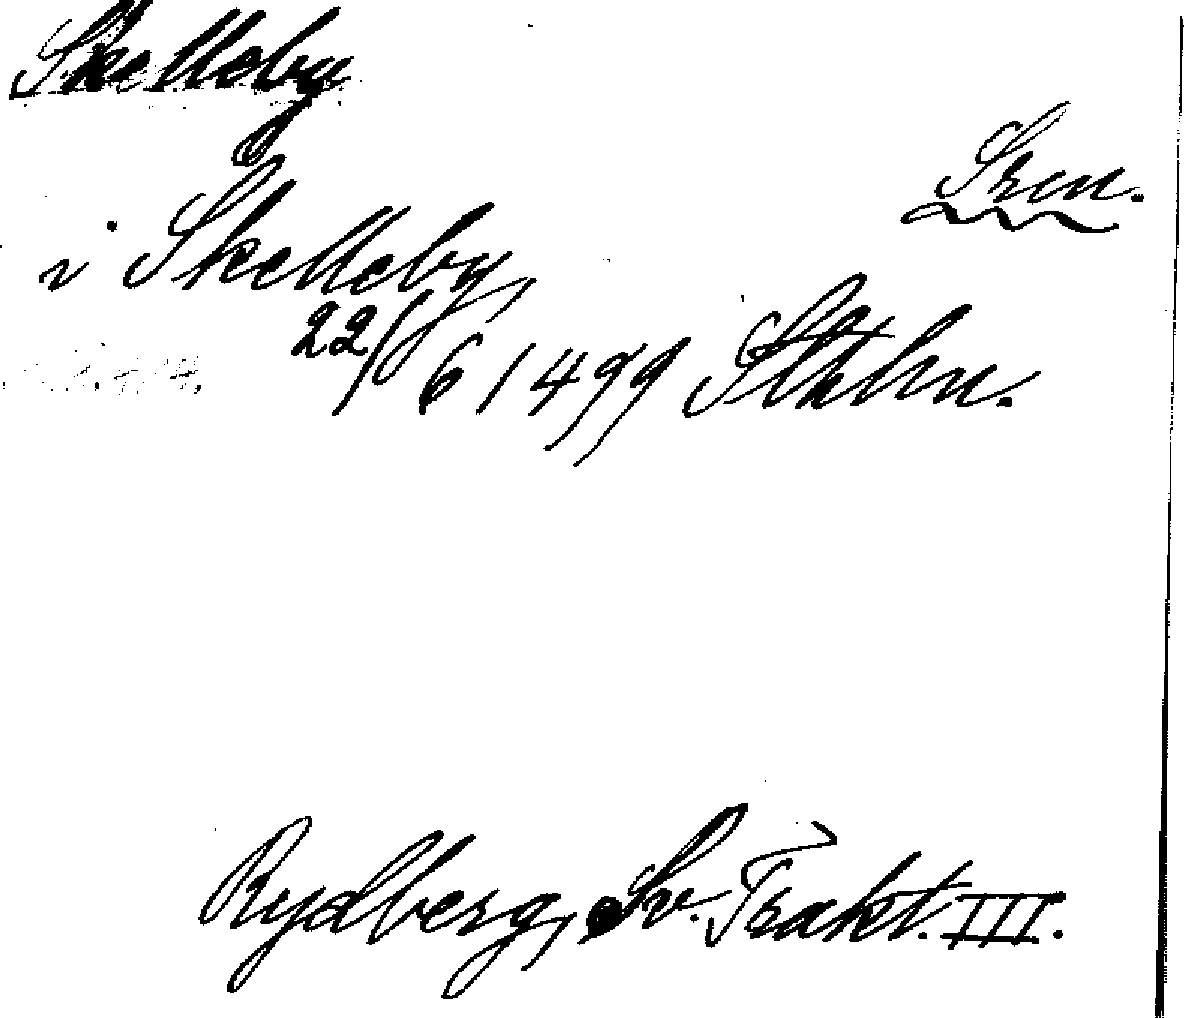 Skelleby
Srm.
i Skelleby,
22/6 1499 Sthlm.
Rydberg, Sv. Trakt. III.